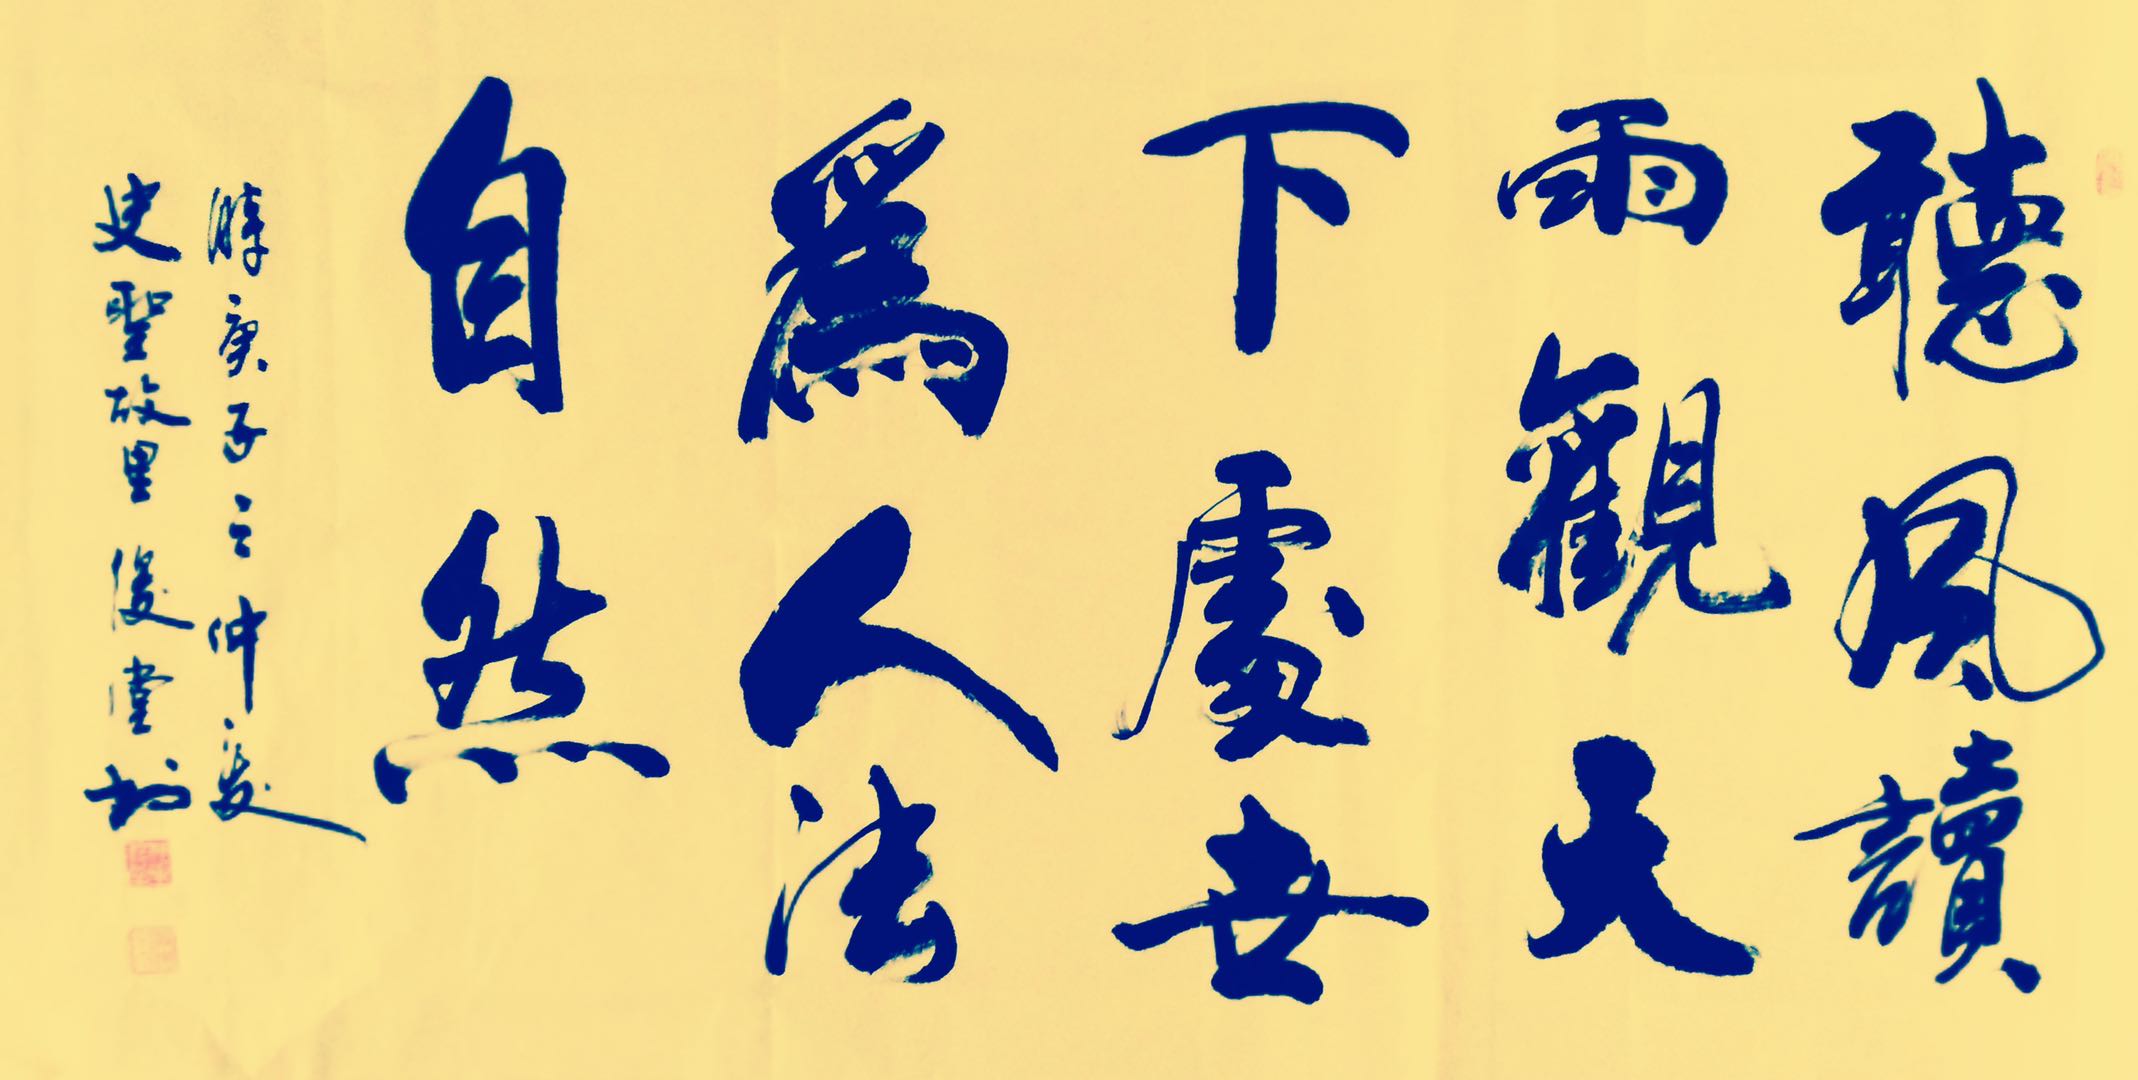 聽風讀
雨觀天
下處世
爲人法
自然
時庚子之仲夏
史聖故里後堂